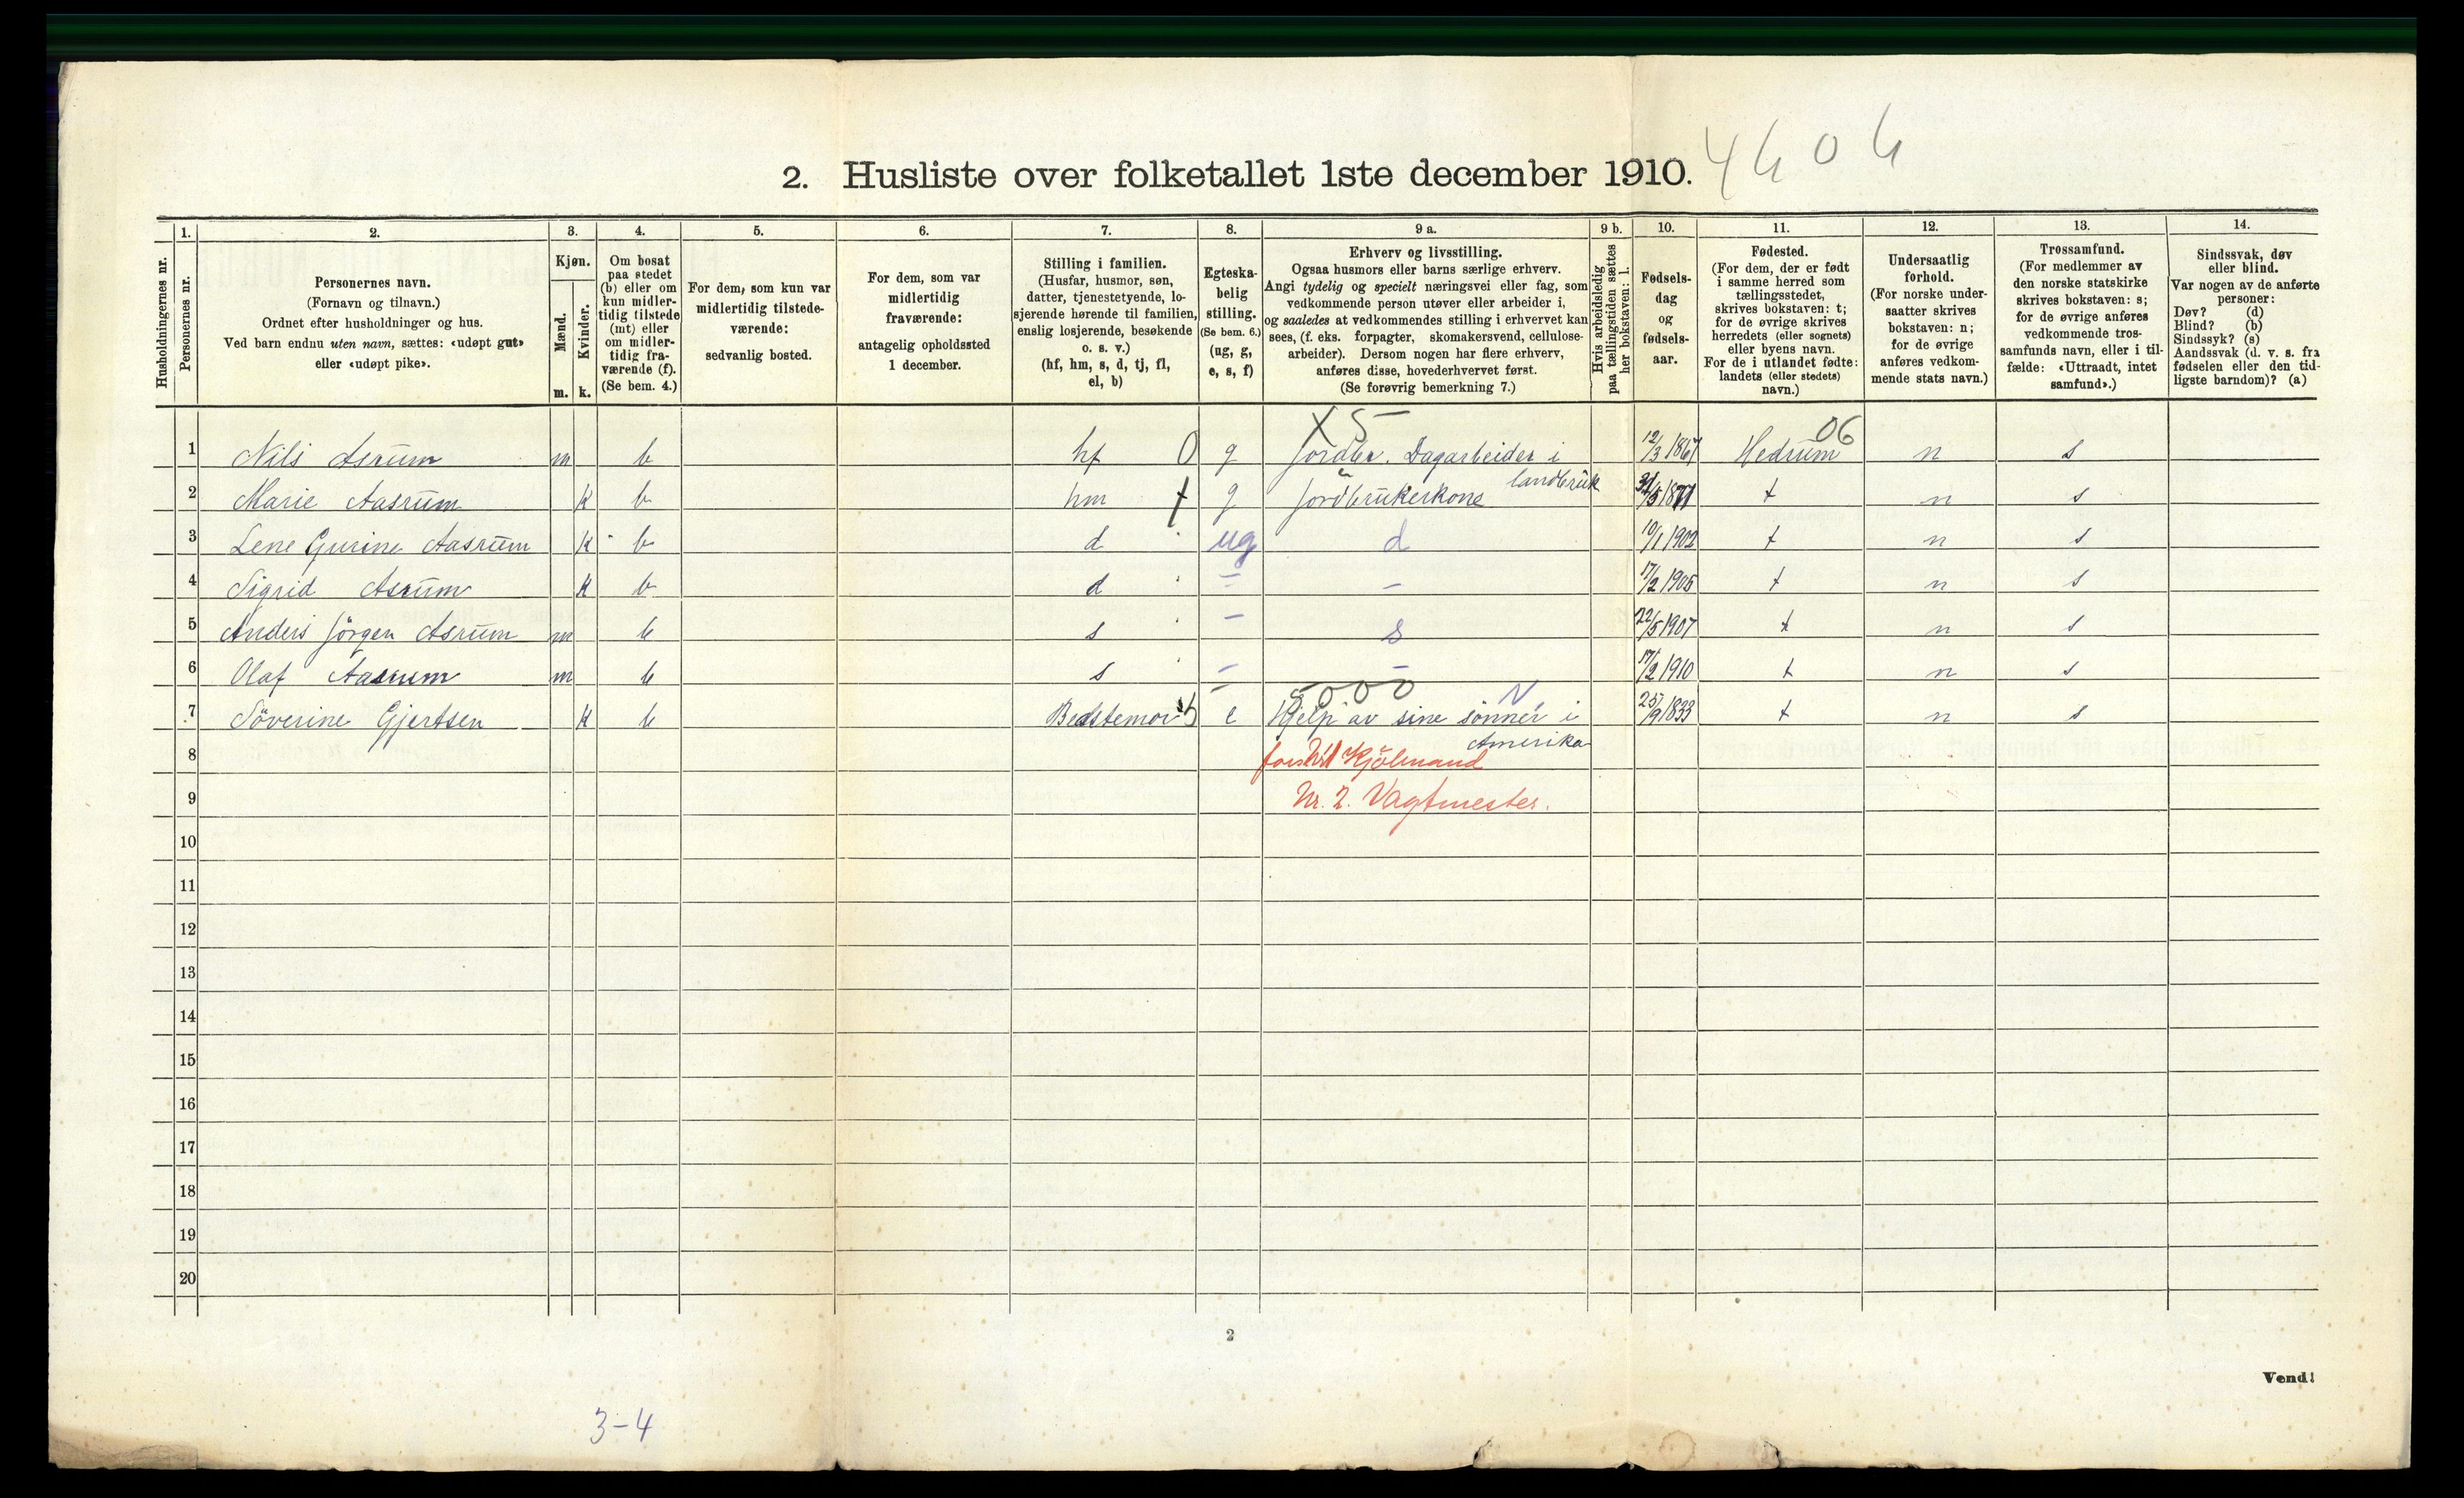 2. Husliste over folketallet 1ste december 1910.
1. 2. 3. 4. 5. 6. 7. 8. 9 a. 9 b. 10. 11. 12. 13. 14.
Husholdningernes nr.
Personernes nr.
Personernes navn.
(Fornavn og tilnavn.)
Ordnet efter husholdninger og hus.
Ved barn endnu uten navn, sættes: «udøpt gut»
eller «udøpt pike».
Kjøn.
Mænd.
Kvinder.
m. k.
Om bosat
paa stedet
(b) eller om
kun midler-
tidig tilstede
(mt) eller
om midler-
tidig fra-
værende (f).
(Se bem. 4.)
For dem, som kun var
midlertidig tilstede-
værende:
sedvanlig bosted.
For dem, som var
midlertidig
fraværende:
antagelig opholdssted
1 december.
Stilling i familien.
(Husfar, husmor, søn,
datter, tjenestetyende, lo-
sjerende hørende til familien,
enslig losjerende, besøkende
o. s. v.)
(hf, hm, s, d, tj, fl,
el, b)
Egteska-
belig
stilling.
(Se bem. 6.)
(ug, g,
e, s, f)
Erhverv og livsstilling.
Ogsaa husmors eller barns særlige erhverv.
Angi tydelig og specielt næringsvei eller fag, som
vedkommende person utøver eller arbeider i,
og saaledes at vedkommendes stilling i erhvervet kan
sees, (f. eks. forpagter, skomakersvend, cellulose-
arbeider). Dersom nogen har flere erhverv,
anføres disse, hovederhvervet først.
(Se forøvrig bemerkning 7.)
Hvis arbeidsledig
paa tællingstiden sættes
her bokstaven: l.
Fødsels-
dag
og
fødsels-
aar.
Fødested.
(For dem, der er født
i samme herred som
tællingsstedet,
skrives bokstaven: t;
for de øvrige skrives
herredets (eller sognets)
eller byens navn.
For de i utlandet fødte:
landets (eller stedets)
navn.)
Undersaatlig
forhold.
(For norske under-
saatter skrives
bokstaven: n;
for de øvrige
anføres vedkom-
mende stats navn.)
Trossamfund.
(For medlemmer av
den norske statskirke
skrives bokstaven: s;
for de øvrige anføres
vedkommende tros-
samfunds navn, eller i til-
fælde: «Uttraadt, intet
samfund».)
Sindssvak, døv
eller blind.
Var nogen av de anførte
personer:
Døv? (d)
Blind? (b)
Sindssyk? (s)
Aandssvak (d. v. s. fra
fødselen eller den tid-
ligste barndom)? (a)
X 5 06
1 Nils Asrum m b hf 0 g Jordbr. Dagarbeider i 12/3 1867 Hedrum n s
landbruk
2 Marie Aasrum k b hm g Jordbrukerkone 1871 t n s
3 Lene Gurine Aasrum k b d ug d 10/1 1902 t n s
4 Sigrid Asrum k b d - - 17/2 1905 t n s
5 Anders Jörgen Asrum m b s - s 22/5 1907 t n s
6 Olaf Aasrum m b s - - 17/2 1910 t n s
5000 N
7 Söverine Gjertsen k b Bedstemor e Hjelp av sine sönner i 25/9 1833 t n s
Amerika
8 Kjölmand
9 Nr. 2. Vagtmester.
10
11
12
13
14
15
16
17
18
19
20
2
Vend!
3-4